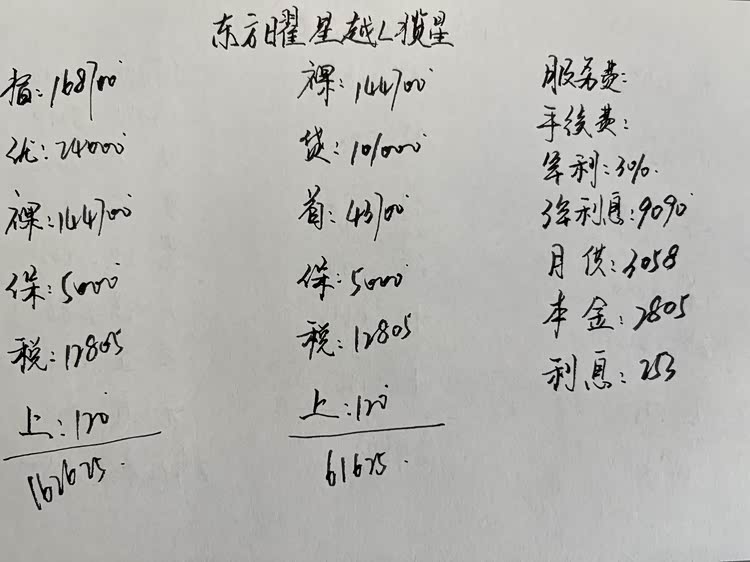 东方曜星越L揽星
指:168700
优:24000
裸:144700
保:5000
税:12805
上:120
162625.
裸:144700
贷:101000
首:43700
保:5000
税:12805
上:120
61625.
服务费:
手续费:
年利:3%.
3年利息:9090
月供:3058
本金:2805
利息:253